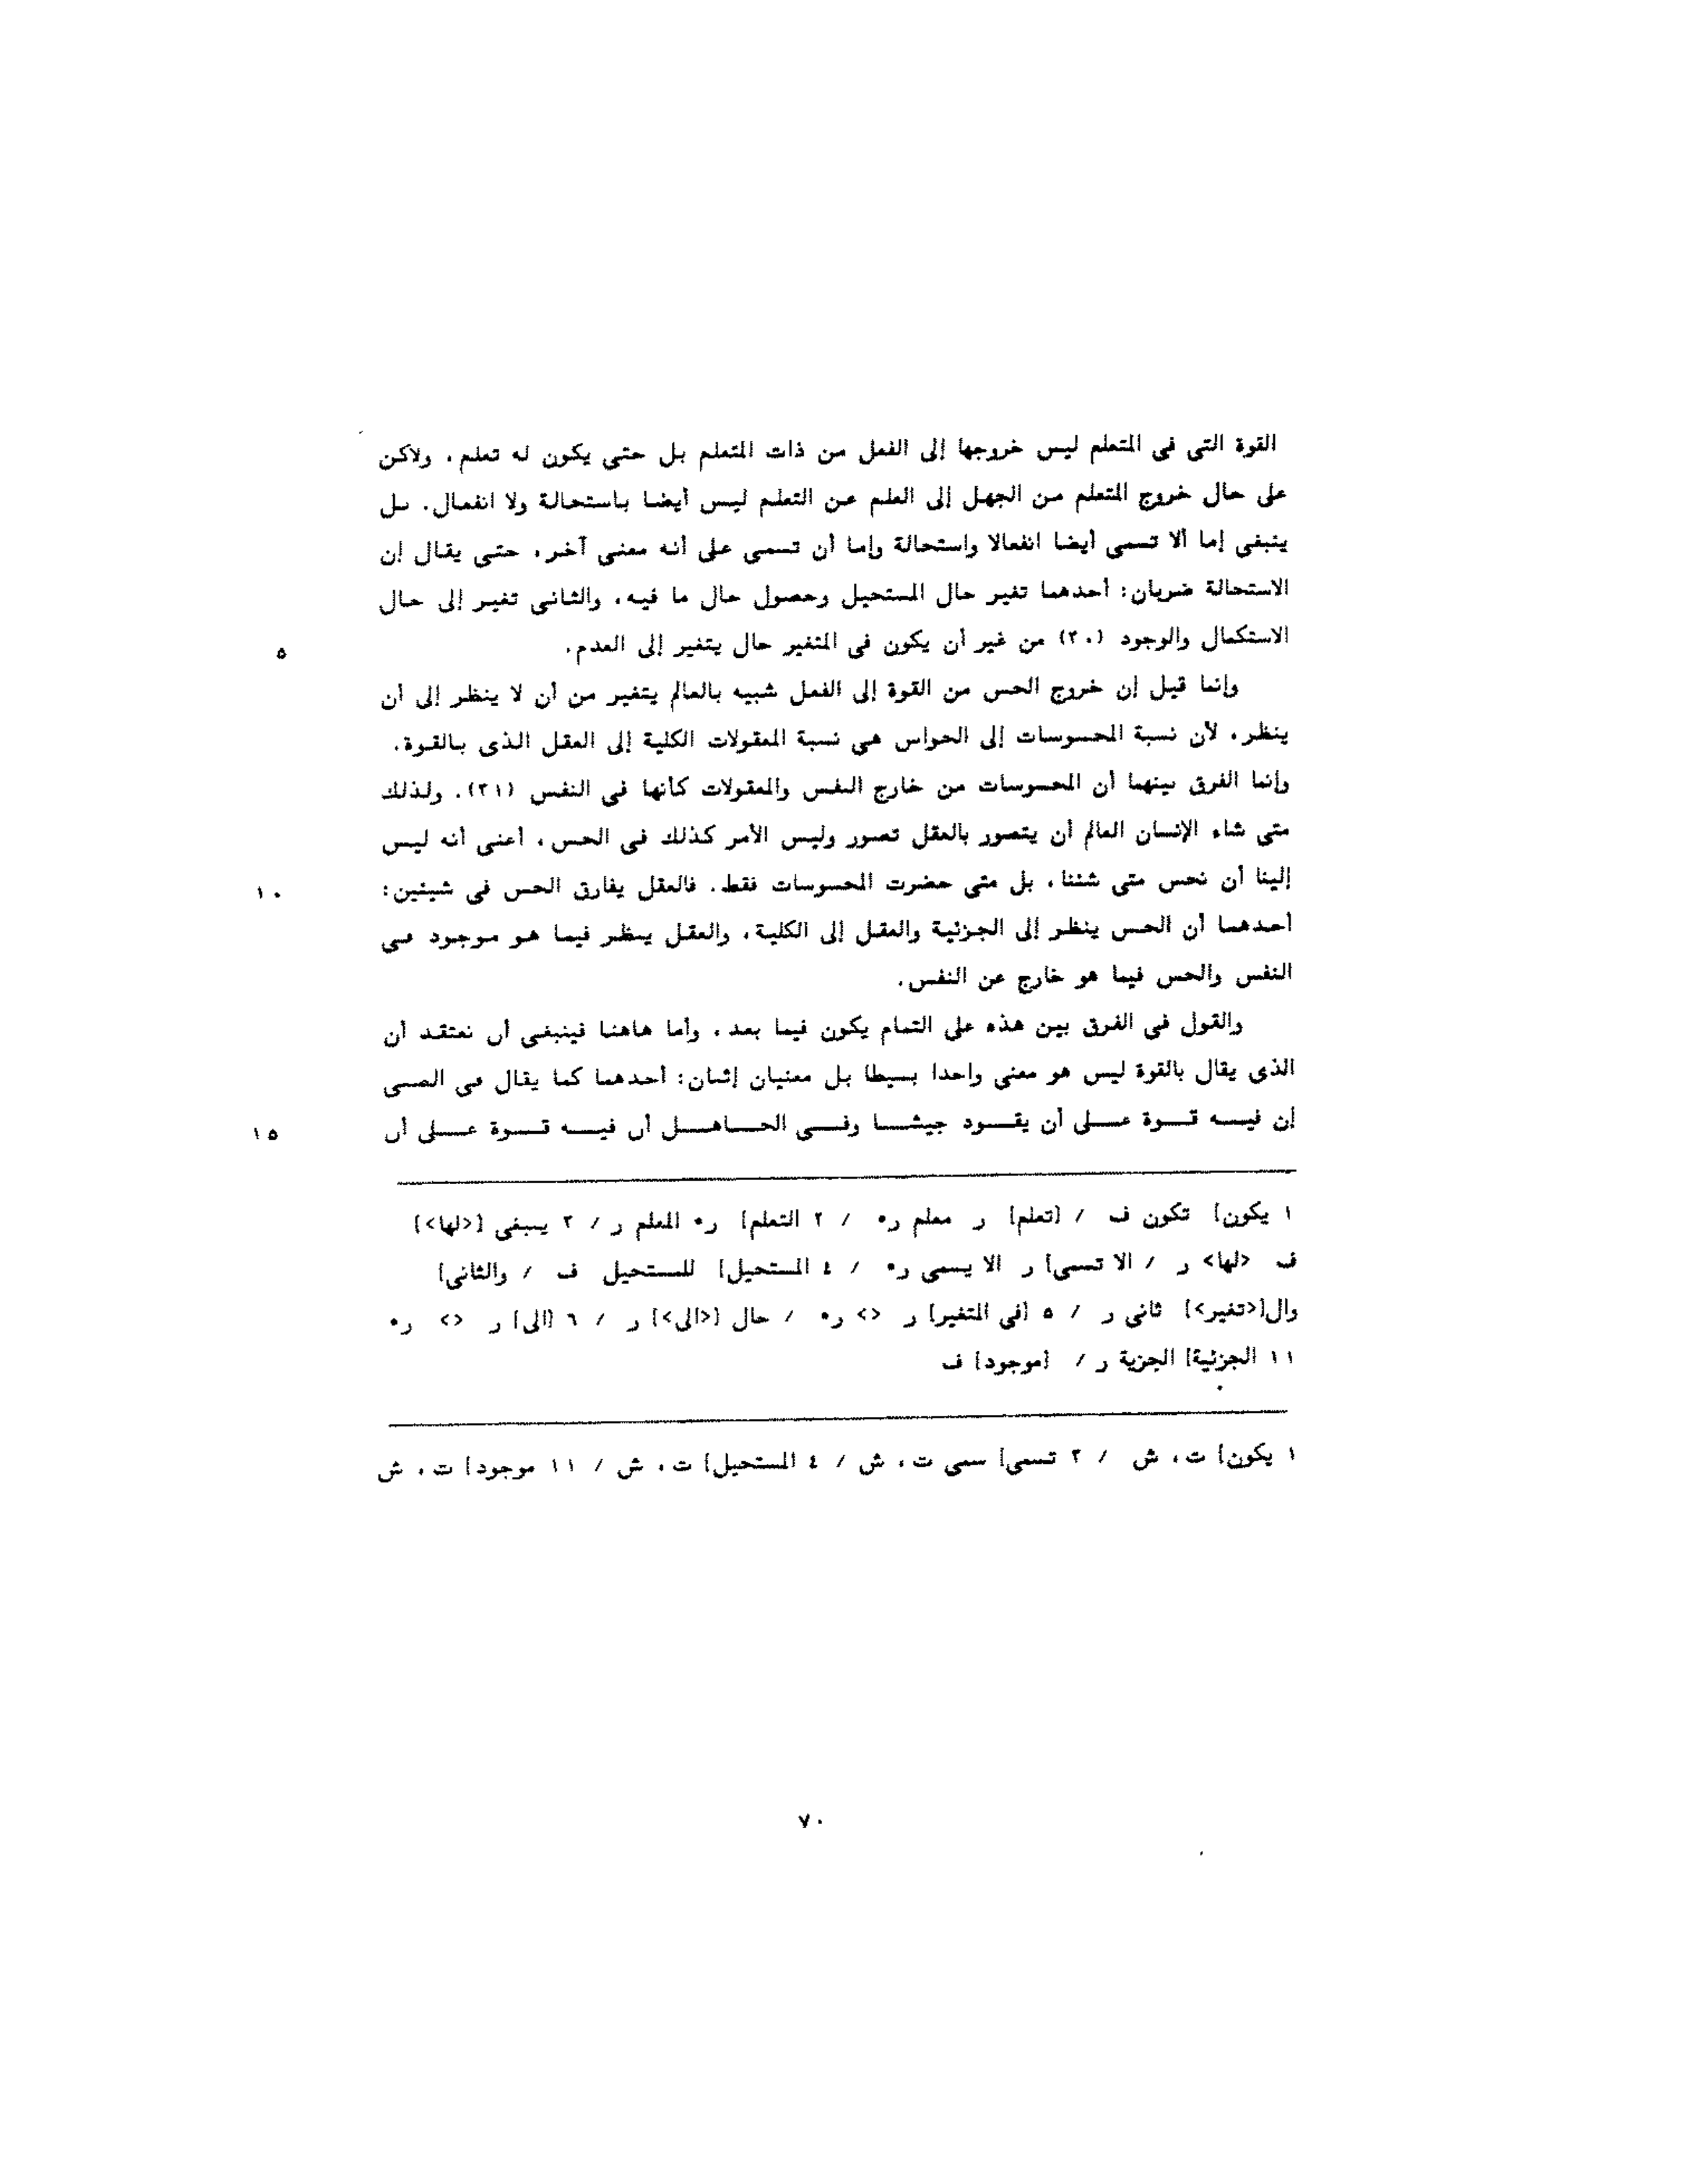 القوة التي في المتعلم ليس خروجها إلى الفعل من ذات المتعلم بل حتى يكون له تعلم، ولاكن
على حال خروج المتعلم من الجهل إلى العلم عن التعلم ليس أيضا باستحالة ولا انفعال. بل
ينبغي إما ألا تسمى أيضا انفعالا واستحالة وإما أن تسمى على أنه معنى آخر، حتى يقال إن
الاستحالة ضربان: أحدهما تغير حال المستحيل وحصول حال ما فيه، والثاني تغير إلى حال
الاستكمال والوجود (٢٠) من غير أن يكون في المتغير حال يتغير إلى العدم.
٥
وإنما قيل إن خروج الحس من القوة إلى الفعل شبيه بالعالم يتغير من أن لا ينظر إلى أن
ينظر، لأن نسبة المحسوسات إلى الحواس هي نسبة المعقولات الكلية إلى العقل الذي بالقوة.
وإنما الفرق بينهما أن المحسوسات من خارج النفس والمعقولات كأنها في النفس (٢١). ولذلك
متى شاء الإنسان العالم أن يتصور بالعقل تصور وليس الأمر كذلك في الحس، أعني أنه ليس
إلينا أن نحس متى شئنا، بل متى حضرت المحسوسات فقط. فالعقل يفارق الحس في شيئين:
١٠
أحدهما أن الحس ينظر إلى الجزئية والعقل إلى الكلية، والعقل ينظر فيما هو موجود في
النفس والحس فيما هو خارج عن النفس.
والقول في الفرق بين هذه على التمام يكون فيما بعد، وأما هاهنا فينبغي أن نعتقد أن
الذي يقال بالقوة ليس هو معنى واحدا بسيطا بل معنيان إثنان: أحدهما كما يقال في الصبى
إن فيه قوة على أن يقود جيشا وفي الجاهل أن فيه قوة على أن
١٥
١ يكون] تكون ف / [تعلم] ر معلم ر* / ٢ التعلم] ر* المعلم ر / ٣ ينبغي [<لها>]
ف <لها> ر / الا تسمى] ر الا يسمى ر* / ٤ المستحيل] للمستحيل ف / والثاني]
وال[<تغير>] ثاني ر / ٥ [في المتغير] ر <> ر* / حال [<الى>] ر / ٦ [الى] ر <> ر*
١١ الجزئية] الجزية ر / [موجود] ف
١ يكون] ت، ش / ٣ تسمى] سمى ت، ش / ٤ المستحيل] ت، ش / ١١ موجود] ت، ش
٧٠